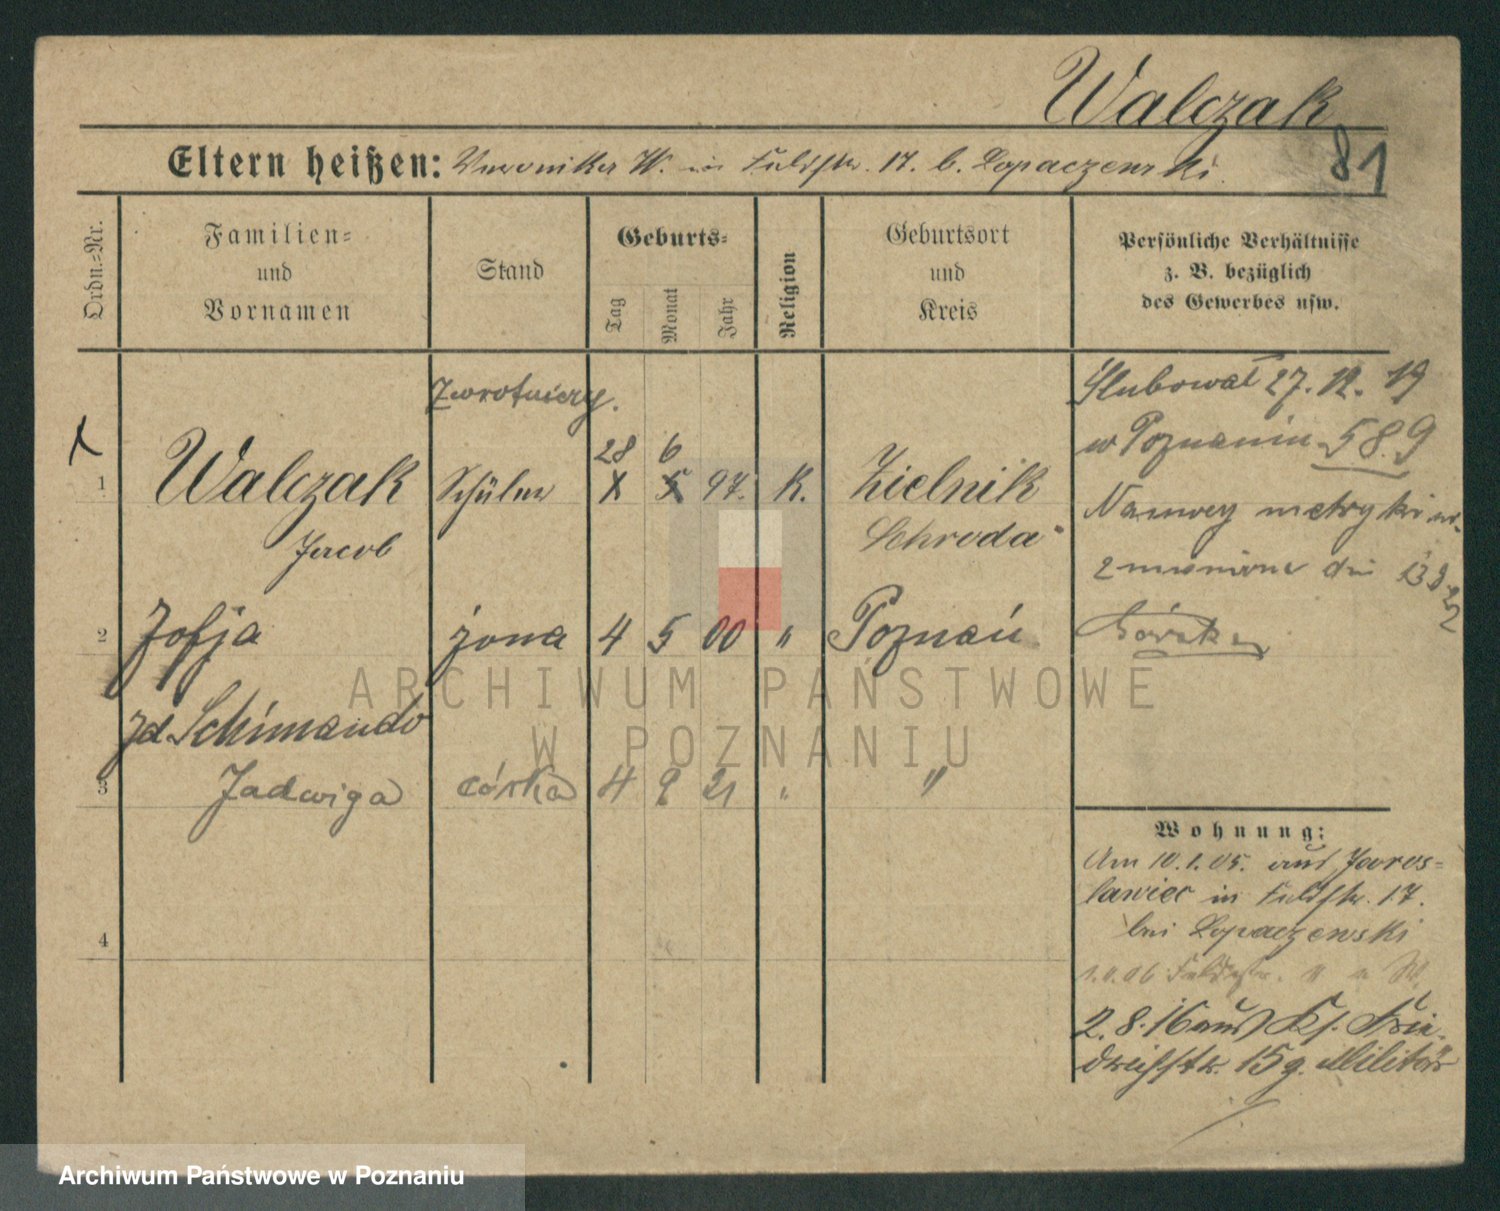 Walczak
81
Eltern heißen: Veronika W. in Feldstr. 17. b. Lopaczewski.
Ordn.=Nr.
Familien=
und
Vornamen
Stand
Geburts=
Tag
Monat
Jahr
Religion
Geburtsort
und
Kreis
Persönliche Verhältnisse
z. B. bezüglich
des Gewerbes usw.
Zwrotniczy.
Ślubował 27.12.19
w Poznaniu 58.9
28 6
1 Walczak Schüler X 5 97. K. Zielnik
Jacob Schroda
Nazwę metryki
dn
2 Zofja żona 4 5 00 " Poznań
zd Schimando
3 Jadwiga córka 4 9 21 " "
4
Wohnung:
Am 10.1.05. aus Jaros=
lawiec in Feldstr. 17.
bei Lopaczewski
1.4.06 Feldstr. " " W.
2.8.16 aus Kl. Frie=
drichstr. 15 z. Militär
ARCHIWUM PAŃSTWOWE
W POZNANIU
Archiwum Państwowe w Poznaniu